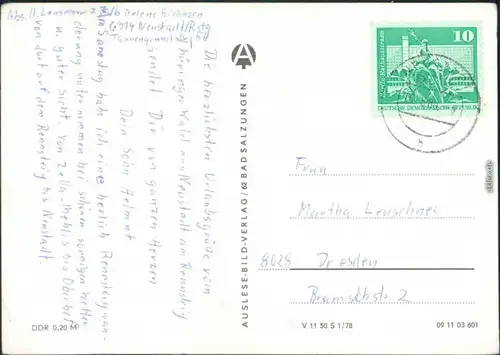 Abs. H. Leuschner z. Zt. b/b Helene Eichhorn
6914 Neustadt/Rstg
Die herzlichsten Urlaubsgrüße vom
Thüringer Wald aus Neustadt am Rennsteig
sendet Dir von ganzen Herzen
Dein Sohn Helmut
Am Sonnabend hab ich eine herrlich Rennsteigwan-
derung unternommen bei schönen sonnigen Wetter
u. guter Sicht von Zella-Mehlis bis Oberhof
von dort auf dem Rennsteig bis Neustadt.
DDR 0,20 M
AUSLESE-BILD-VERLAG / 62 BAD SALZUNGEN
10
DEUTSCHE DEMOKRATISCHE REPUBLIK
Frau
Martha Leuschner
8028 Dresden
2
V 11 50 S 1/78
09 11 03 601